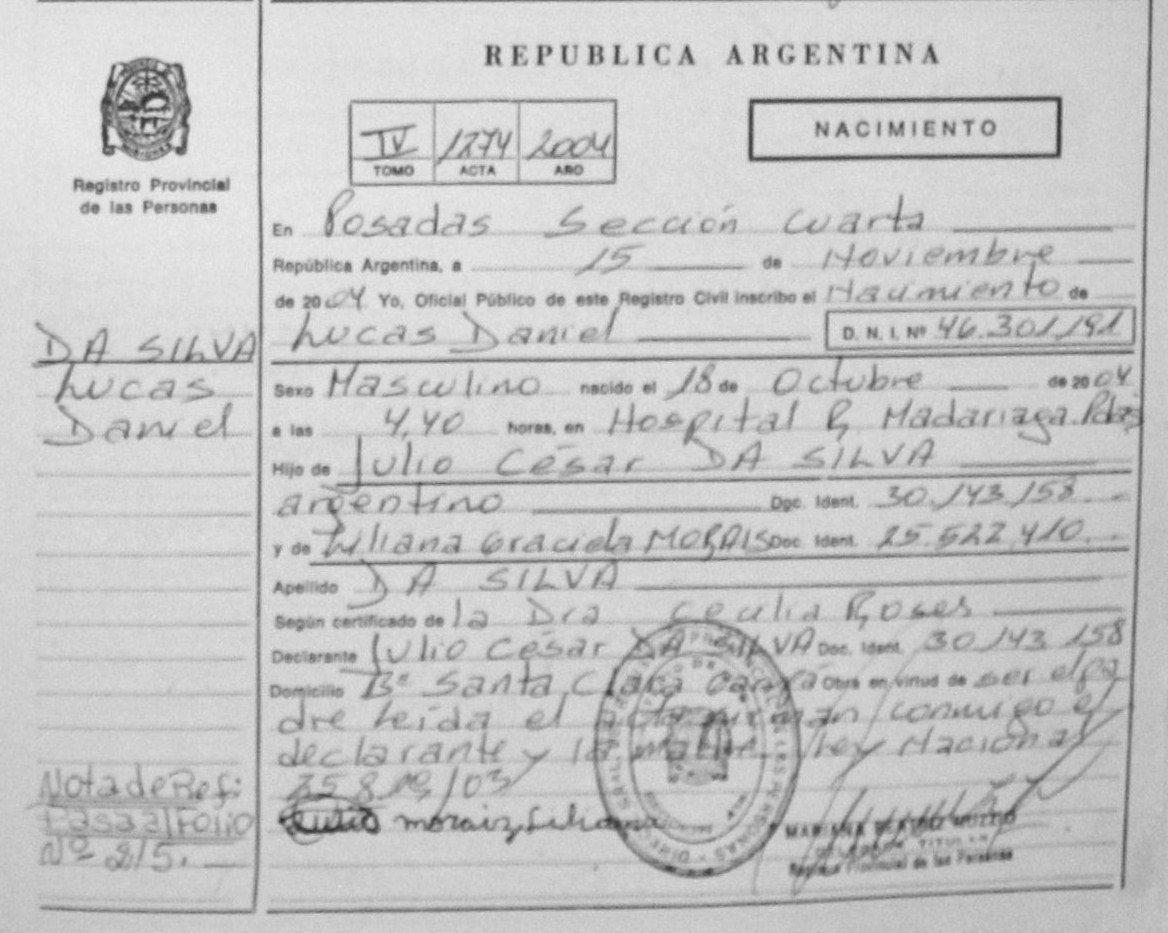 REPUBLICA ARGENTINA
Registro Provincial
de las Personas
IV 1274 2004
TOMO ACTA AÑO
NACIMIENTO
En Posadas Sección Cuarta
República Argentina, a 15 de Noviembre
de 2004 Yo, Oficial Público de este Registro Civil inscribo el Nacimiento de
Lucas Daniel D. N. I. Nº 46.301.191
DA SILVA
Lucas
Daniel
Sexo Masculino nacido el 18 de Octubre de 2004
a las 4,40 horas, en Hospital R. Madariaga. Pdas
Hijo de Julio César DA SILVA
argentino Doc. Ident. 30.143.158
y de Liliana Graciela MORAIS Doc. Ident. 25.522.410
Apellido DA SILVA
Según certificado de la Dra Cecilia Roses
Declarante Julio César DA SILVA Doc. Ident. 30.143.158
Domicilio Bº Santa Clara Obra en virtud de ser el pa
dre leída el acta firman conmigo el
declarante y la Ley Nacional
/03
moraiz, Liliana
Nota de Ref:
Pasa al Folio
Nº 215.
Registro Provincial de las Personas